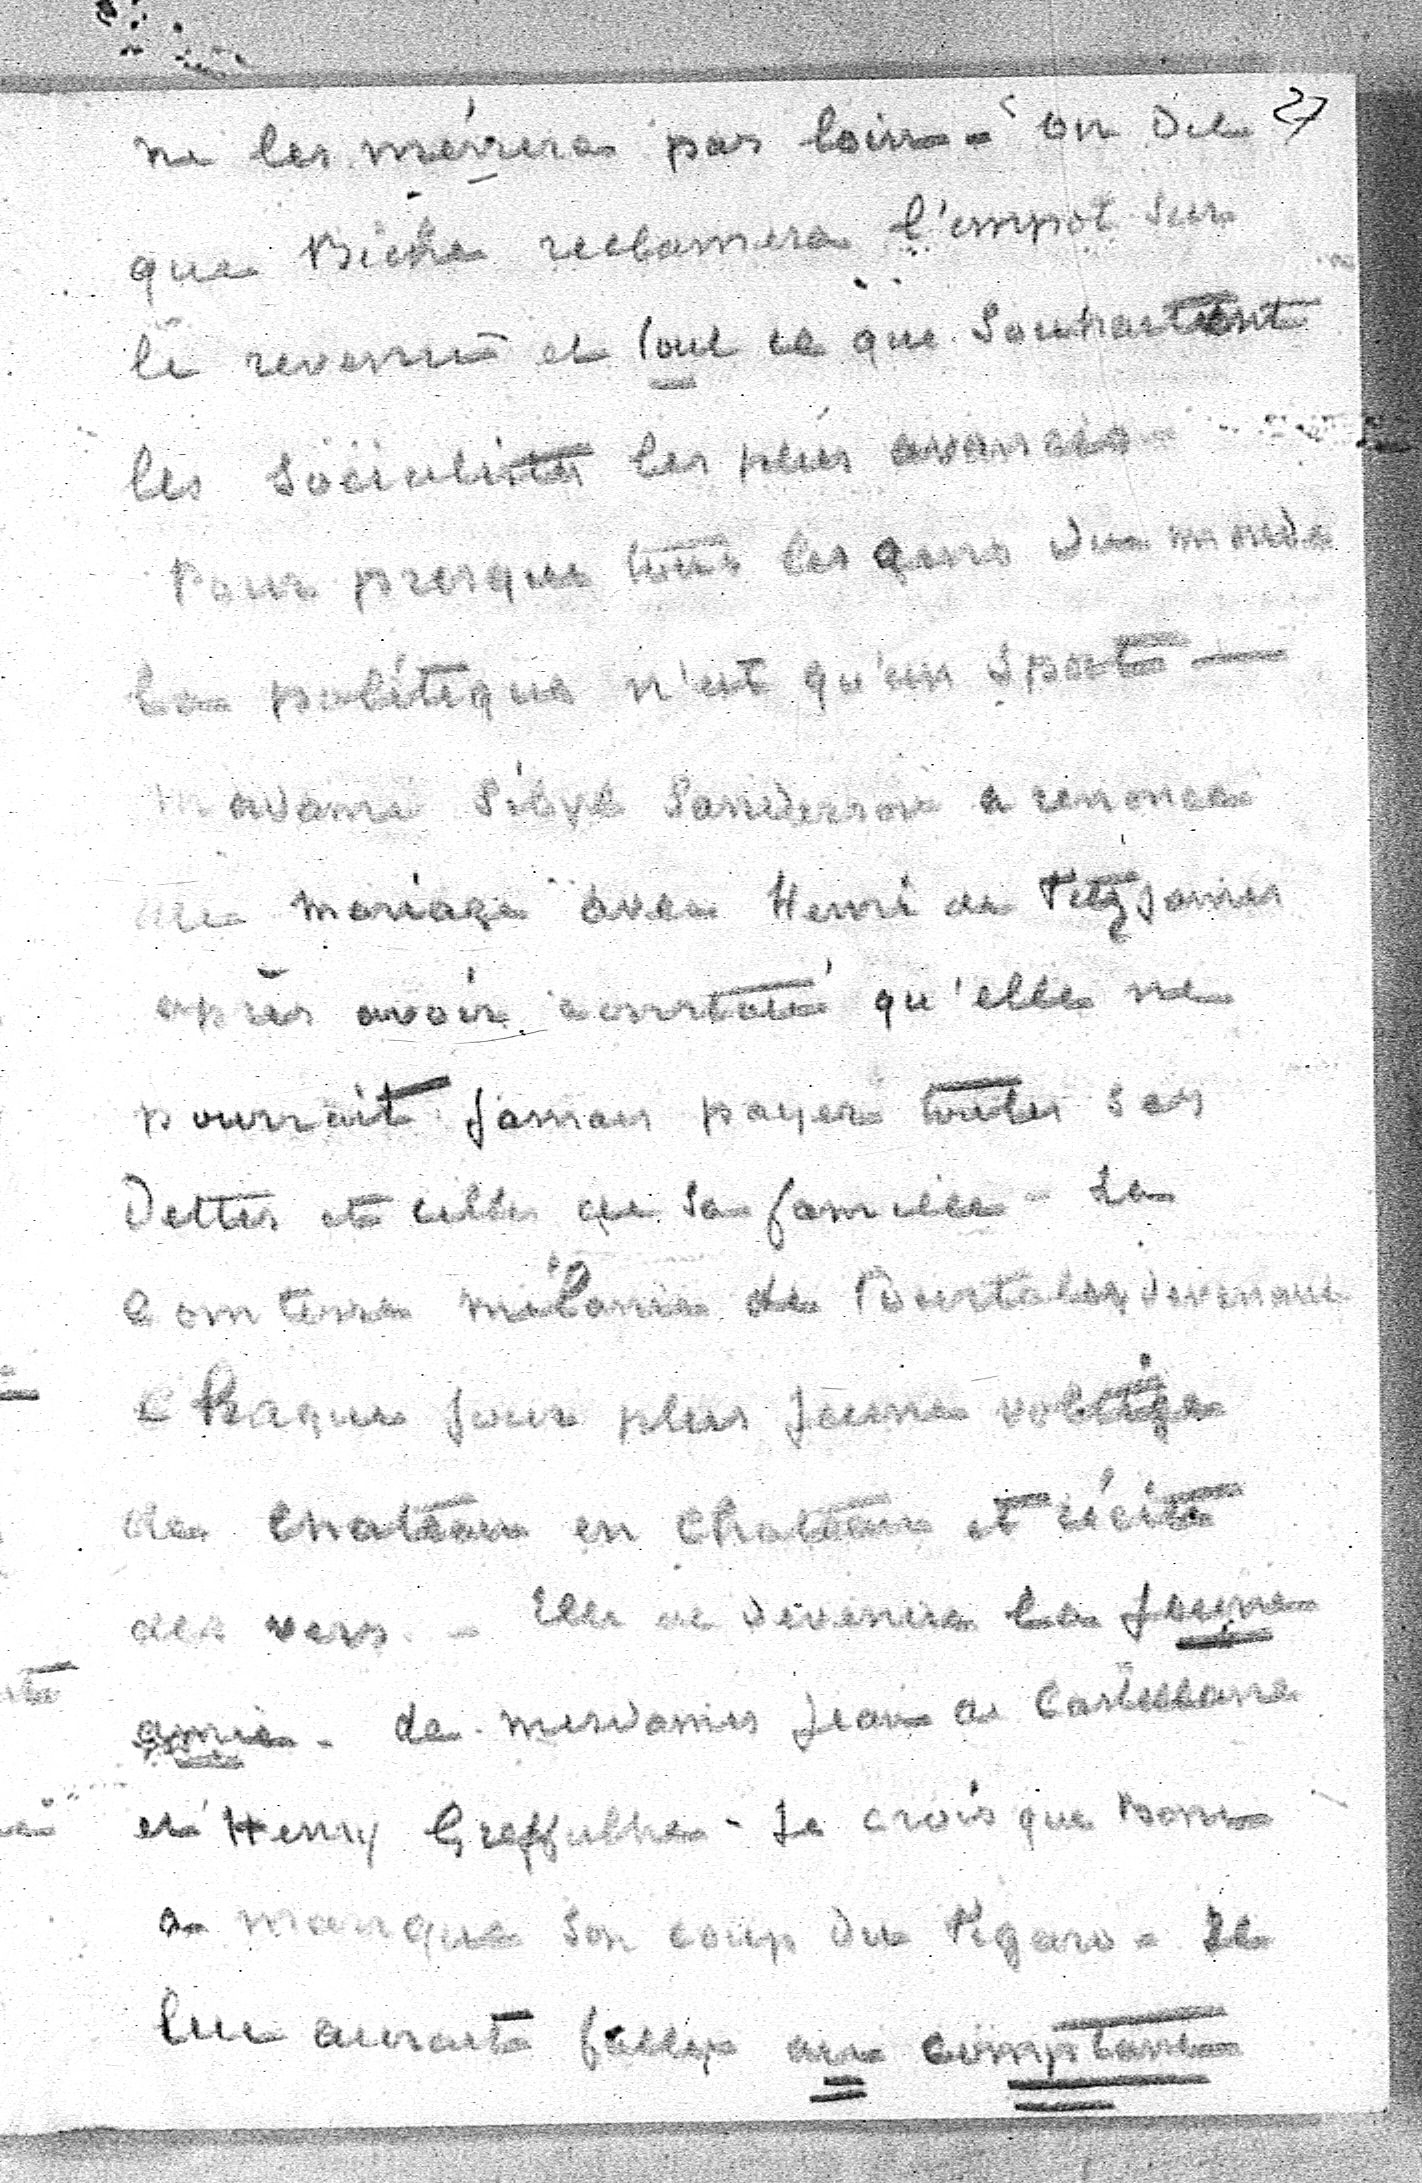 27
ne les mènera pas loin - on dit
que Biche reclamera l'impot sur
le revenu et tout ce que souhaitent
les socialistes les plus avancés
Pour presque tous les gens du monde
la politique n'est qu'un sport —
Madame Sibyl Sanderson a renoncé
au mariage avec Henri de Fitz James
après avoir constaté qu'elle ne
pourrait jamais payer toutes ses
Dettes et celles de sa famille - La
Comtesse Mélanie de Pourtales, devenant
chaque jour plus jeune voltige
de chateau en chateau et récite
des vers. - Elle est devenue la jeune
amie - de mesdames Jean de Castellane
et Henry Greffulhe - Je crois que Boni
a manqué son coup du Figaro - Il
lui aurait fallu du comptant